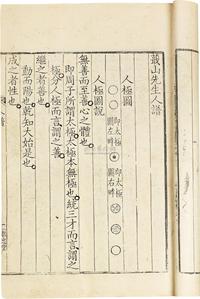 蕺山先生人譜
人極圖
即太極
圖左畔
即太極
圖右畔
人極圖說
無善而至善心之體也
即周子所謂太極太極本無極也統三才而言謂之
極分人極而言謂之善
繼之者善也
動而陽也乾知大始是也
成之者性也
人譜